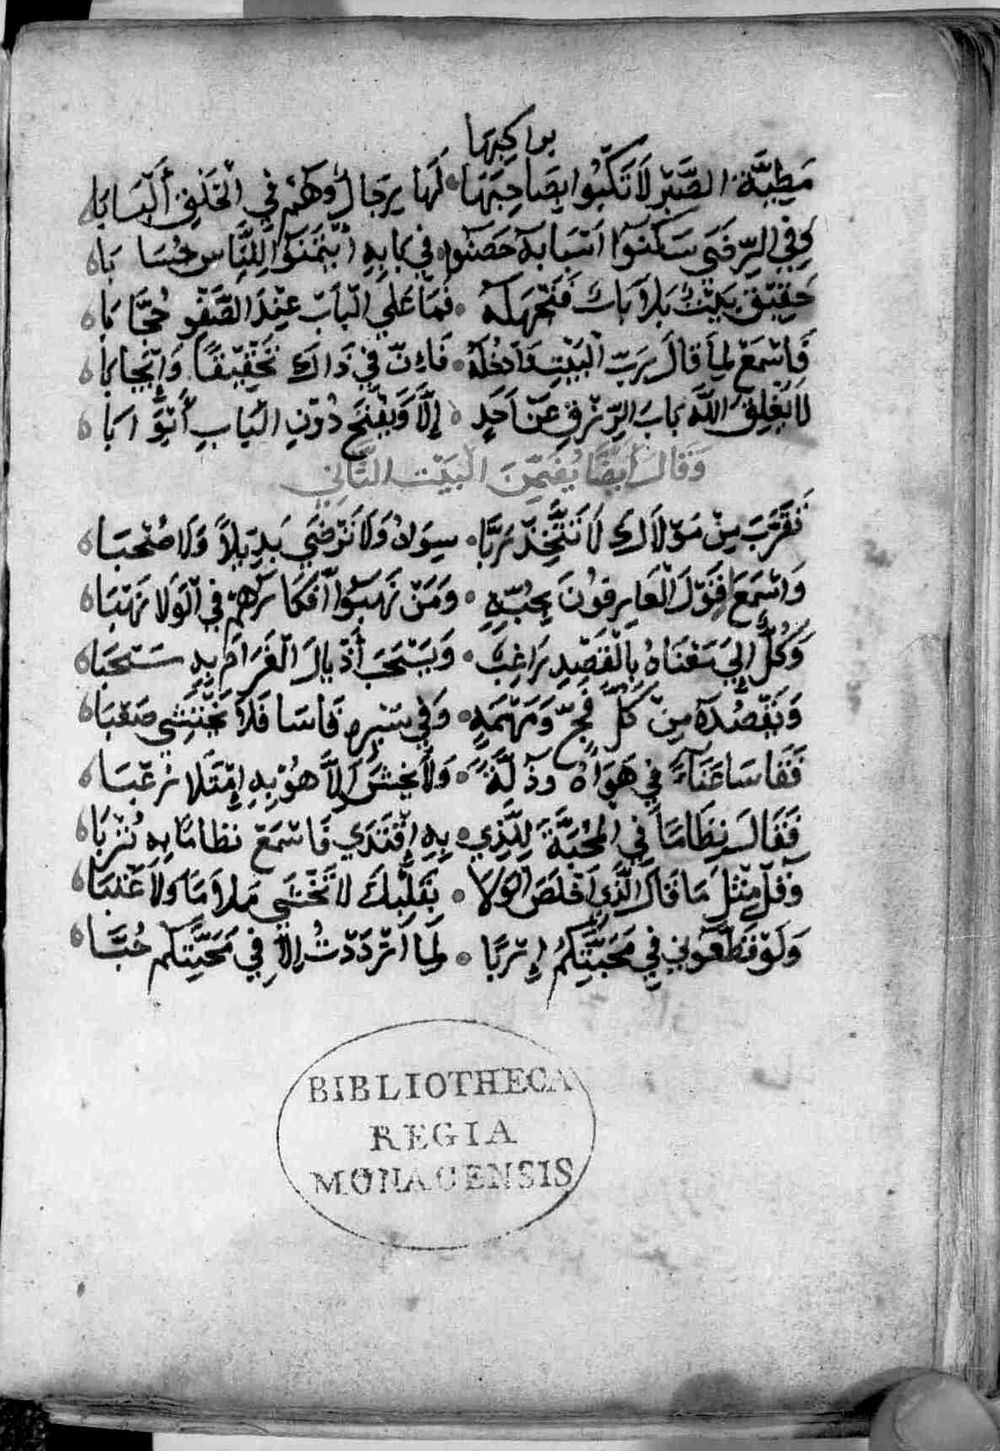 براكبها
مَطِيَّة الصَّبْرِ لَا تَكْبُوا بِصَاحِبِهَا • لَهَا رِجَالٌ وَهُمْ فِي الْخَلْقِ أَلْبَابَا
وَفِي الرِّضَى سَكَنُوا أَسْبَابَهُ حَصَنُوا • فِي بَابِهِ لِلنَّاسِ حُسَّابَا
حَقِيقَ بَيْتُكَ بَابَكَ • فَمَا عَلَى الْبَابِ عِنْدَ الصَّفْوِ حُجَّابَا
فَاسْمَعْ لِمَا قَالَ رَبُّ الْبَيْتِ فَادْخُلَهُ • فَإِنَّ فِي ذَاكَ تَحْقِيقًا وَإِيجَابَا
لَا يُغْلِقُ اللَّهُ بَابَ الرِّزْقِ عَنْ أَحَدٍ • إِلَّا وَيَفْتَحُ دُونَ الْبَابِ أَبْوَابَا
وَقَالَ أَيْضًا يُضَمِّنُ الْبَيْت الثَّانِي
تَقَرَّبَ مِنْ مَوْلَاكَ لَا تَتَّخِذْ رَبَّا • سِوَاهُ وَلَا تَرْضَى بَدِيلًا وَلَا صُحْبَا
وَاسْمَعْ قَوْلَ الْعَارِفُونَ بِحُبِّهِ • وَمَنْ نَهَبُوا أَفْكَارَهُمْ فِي الْوَلَا نَهْبَا
وَكُلٌّ إِلَى مَغْنَاهُ بِالْقَصْدِ رَاغِبٌ • وَيَسْحَبُ أَذْيَالَ الْغَرَامِ بِهِ سَحْبَا
وَيَقْصُدُهُ مِنْ كُلِّ فَجٍّ وَمَهْمَهٍ • وَفِي سَيْرِهِ قَاسَا فَلَا يَخْتَشِي صَعْبَا
فَقَاسَا عَنَاءً فِي هَوَاهُ وَذِلَّةً • وَلَا يَخْشَى إِلَّا هُوْ بِهِ امْتَلَا رُعْبَا
فَقَالَ نِظَامًا فِي الْمَحَبَّةِ لِلَّذِي • بِهِ اقْتَدَى فَاسْمَعْ نِظَامًا بِهِ تُرْبَا
وَقُلْ مِثْلَ مَا قَالَ الَّذِي أَخْلَصَ الْوَلَا • بِقَلْبِكَ لَا تَخْشَى مَلَامًا وَلَا عَتْبَا
وَلَوْ قَطَّعُونِي فِي مَحَبَّتِكُمْ إِرْبًا • لَمَا ازْدَدْتُ إِلَّا فِي مَحَبَّتِكُمْ حُبَّا
BIBLIOTHECA
REGIA
MONACENSIS